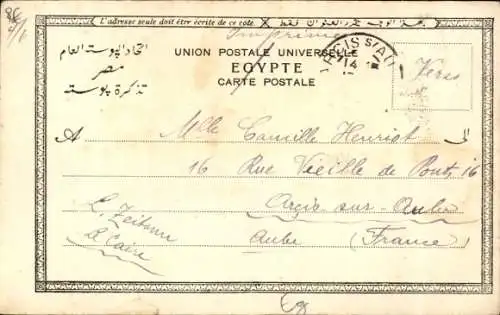 L'adresse seule doit être écrite de ce côté
Imprimé
UNION POSTALE UNIVERSELLE
EGYPTE
CARTE POSTALE
اتحاد البوستة العام
مصر
تذكرة بوستة
ARCIS S/AUBE
14
Verso
A
Melle Camille Henriot
الى
16 Rue Vieille de Pont, 16
Arcis-sur-Aube
Aube (France)
L. Zeitoun
Le Caire
Eg